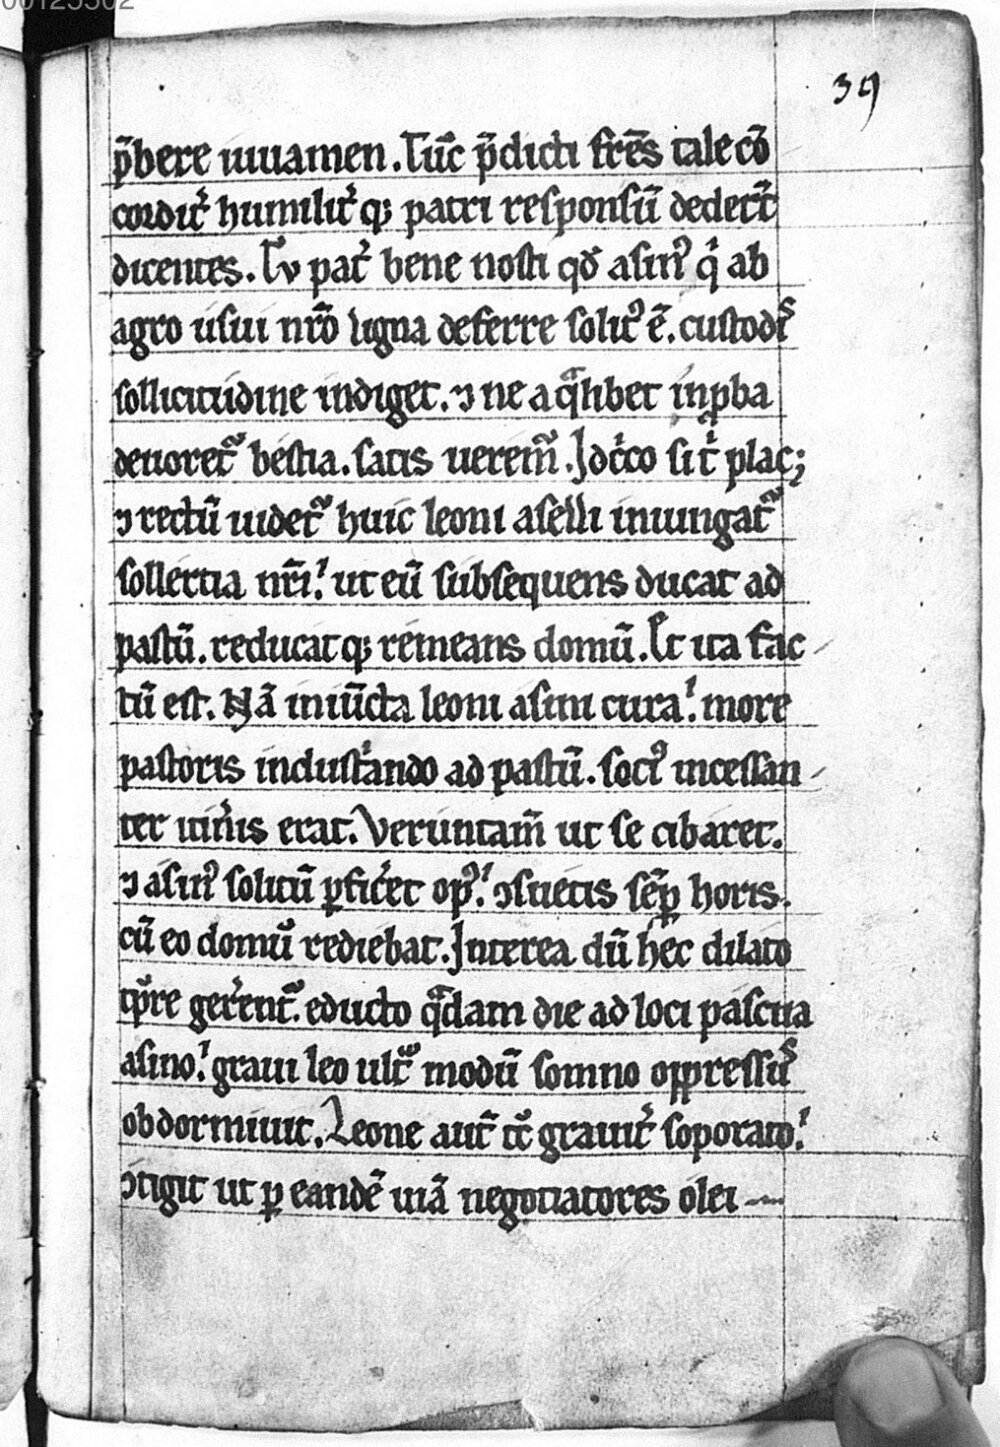 00125502
39
p̄bere iuuamen. Tūc p̄dicti fr̄es tale cō
cordit᷑ humilit᷑ qꝫ patri responsū dedert̄
dicentes. Tu pat᷑ bene nosti qđ asinꝰ qͥ ab
agro usui nr̄o ligna deferre solitꝰ ē. custodiˢ
sollicitudine indiget. ⁊ ne a qͣlibet inꝓba
deuoret᷑ bestia. satis uerem᷑. Idcͥco si t᷑ placꝫ
⁊ rectū uidet᷑ huic leoni aselli iniungat᷑
sollertia nr̄i. ut eū subsequens ducat ad
pastū. reducatqꝫ remeans domū. Et ita fac
tū est. Nā iniūcta leoni asini cura. more
pastoris industͣndo ad pastū. sociꝰ incessan
ter itin̄is erat. Veruntam̄ ut se cibaret.
⁊ asinꝰ solitū ꝑfic̄et opꝰ. ꝯsuetis sēp horis.
cū eo domū rediebat. Interea dū hec dilato
tp̄re ger̄ent᷑. educto qͣdam die ad loci pascua
asino. graui leo ult᷑ modū somno oppressuˢ
obdormiuit. Leone aut̄ tc̄ grauit᷑ soporato.
ꝯtigit ut ꝑ eandē uiā negotiatores olei